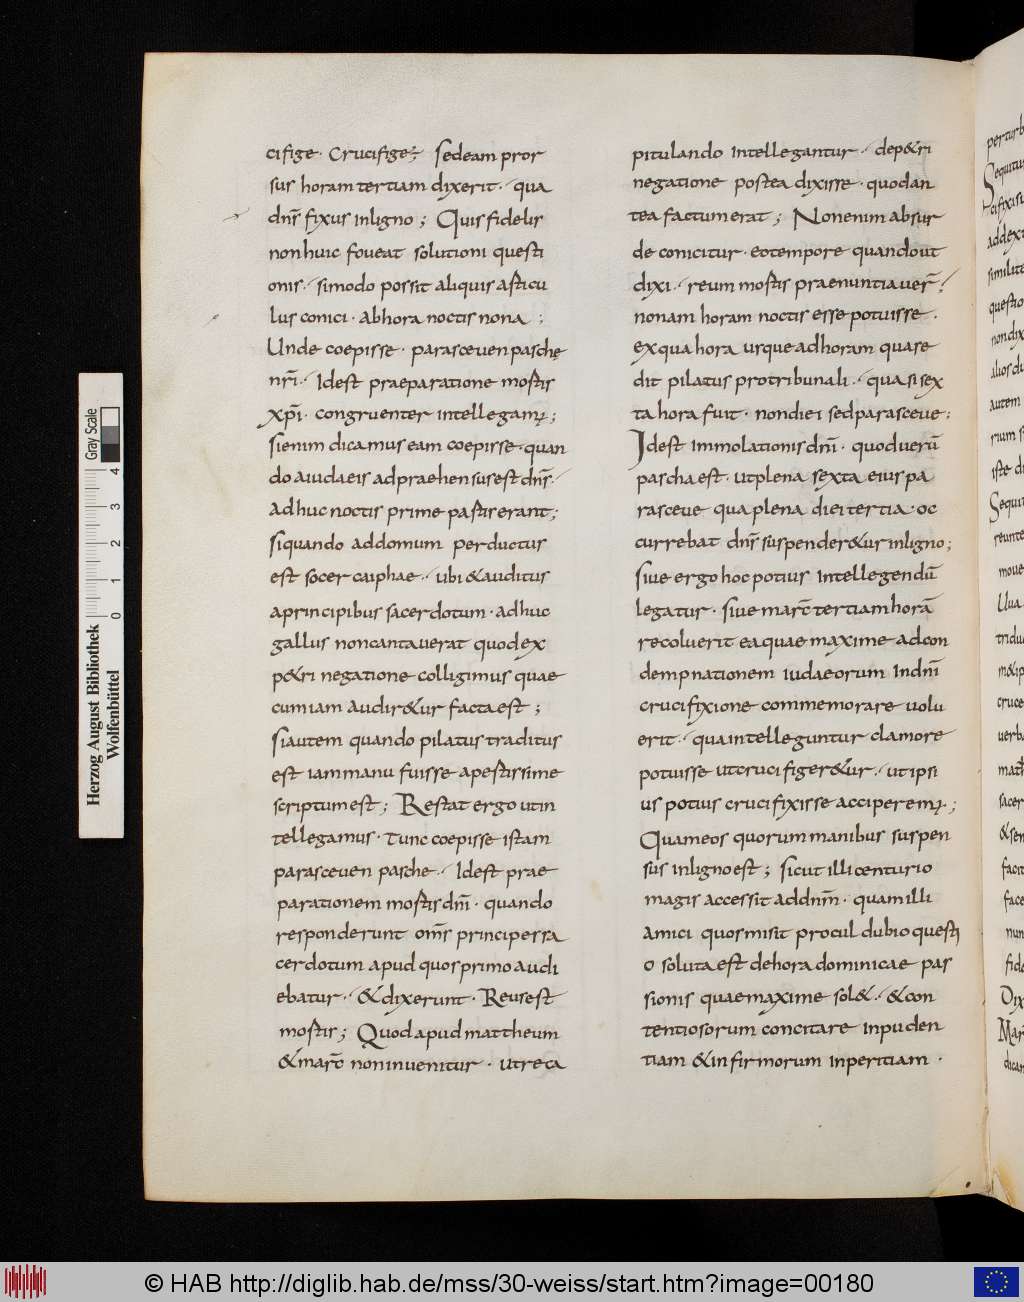 cifige · Crucifige ; Sedeam pror
sus horam tertiam dixerit · qua
dnſ fixus inligno ; Quis fidelis
nonhuic foveat solutioni questi
onis · simodo possit aliquis asticu
lus conici · abhora noctis nona ;
Unde coepisse · parasceven paschę
nrī · Idest praeparatione mostis
xpī · congruenter intellegam ;
sienim dicamus eam coepisse · quan
do aiudaeis adpraehensusest dnſ
adhuc noctis prime pastirerant ;
siquando addomum perductus
est socer caiphae · ubi &auditus
aprincipibus sacerdotum · adhuc
gallus noncantaverat quodex
p&ri negatione colligimus quae
cumiam audir&ur factaest ;
siautem quando pilatus traditus
est iammanu fuisse apestissime
scriptumest ; Restat ergo utin
tellegamus · Tunc coepisse istam
parasceven pasche · Idest prae
parationem mostis dnī · quando
responderunt oms principes sa
cerdotum apud quos primo audi
ebatur · &dixerunt · Reusest
mostis ; Quod apud mattheum
&marc̄ noninvenitur · utreca
pitulando intellegantur · dep&ri
negatione postea dixisse · quodan
tea factumerat ; Nonenim absur
de conicitur · eotempore quandout
dixi · reum mostis praenuntiaver̄
nonam horam noctis esse potuisse ·
exqua hora usque adhoram quase
dit pilatus protribunali · quasi sex
ta hora fuit · nondiei sedparasceve ;
Idest immolationis dnī · quodverū
pascha est · utplena sexta eius pa
rasceve qua plena diei tertia · oc
currebat dnſ suspender&ur inligno ;
sive ergo hoc potius intellegendū
legatur · sive marc̄ tertiam horā
recoluerit ea quae maxime adcon
dempnationem iudaeorum indnī
crucifixione commemorare volu
erit · quaintelleguntur clamore
potuisse utcrucifiger&ur · ut ipsi
us potius crucifixisse acciperem ;
Quameos quorum manibus suspen
sus inlignoest ; sicut ille centurio
magis accessit addnm̄ · quam illi
amici quosmisit procul dubio questi
o soluta est dehora dominicae pas
sionis quae maxime sol& · &con
tentiosorum concitare inpuden
tiam &infirmorum inperitiam ·
Herzog August Bibliothek
Wolfenbüttel
0 1 2 3 4
Gray Scale
© HAB http://diglib.hab.de/mss/30-weiss/start.htm?image=00180